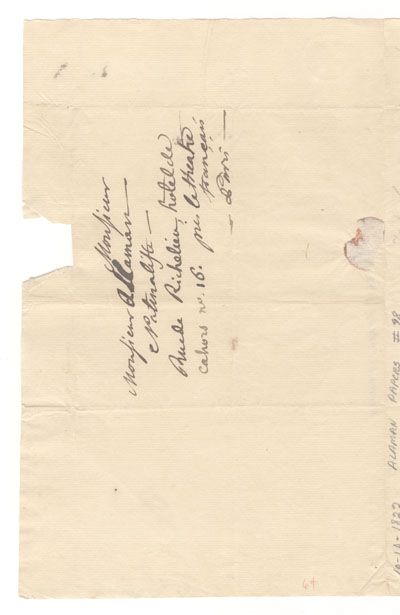 Monsieur
Monsieur Allaman
Naturaliste
Rue de Richelieu, hotel de
cahors nº. 16. près le theatre
français
à Paris
10-14-1822 ALAMAN PAPERS # 98
64